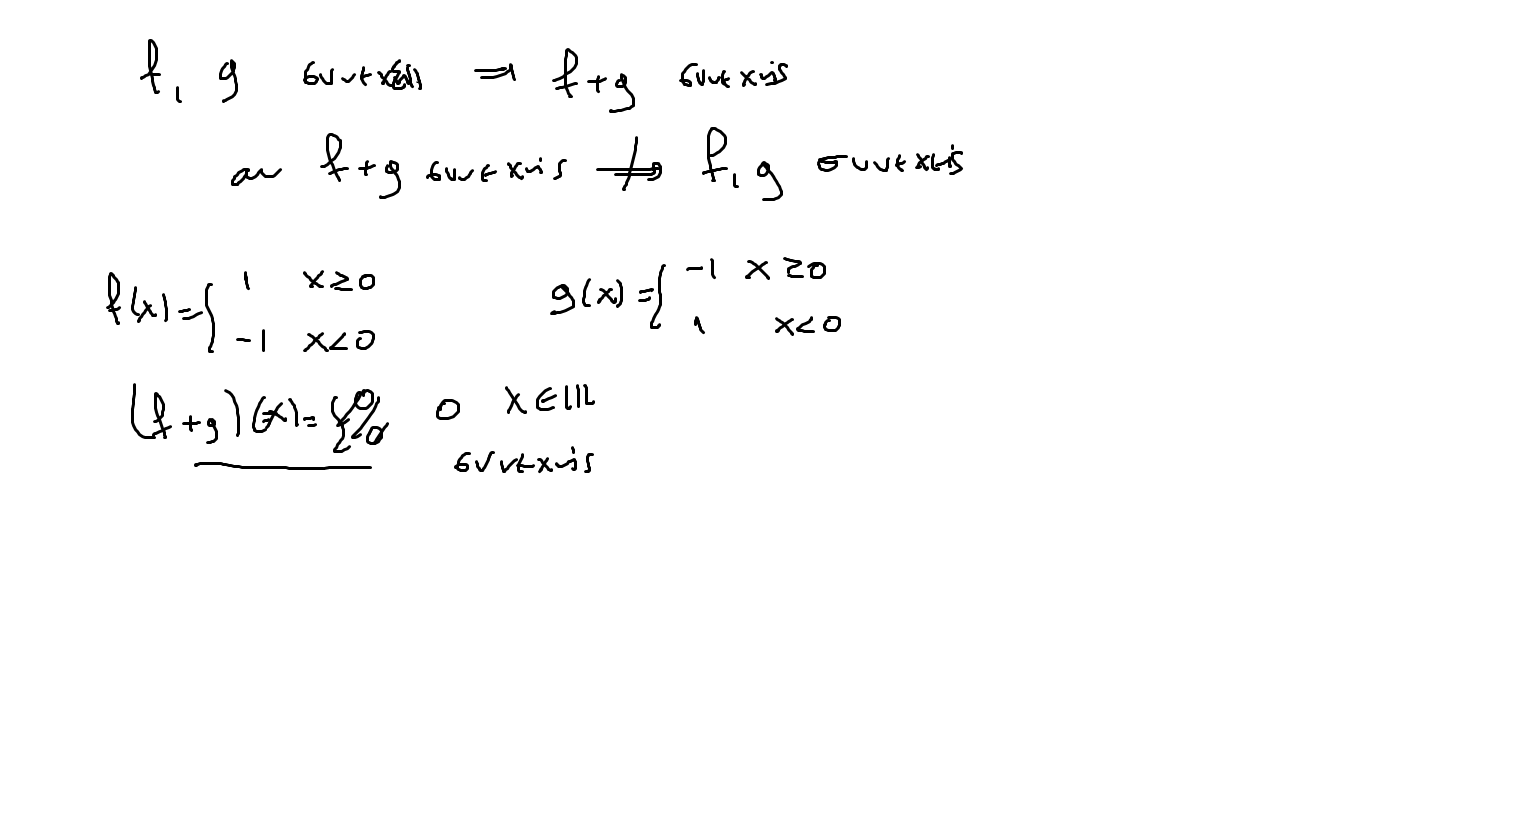 f, g συνεχείς ⇒ f+g συνεχής
αν f+g συνεχής ⇏ f, g συνεχείς
f(x) = { 1 x≥0
-1 x<0
g(x) = { -1 x≥0
1 x<0
(f+g)(x) = 0 x∈ℝ
συνεχής